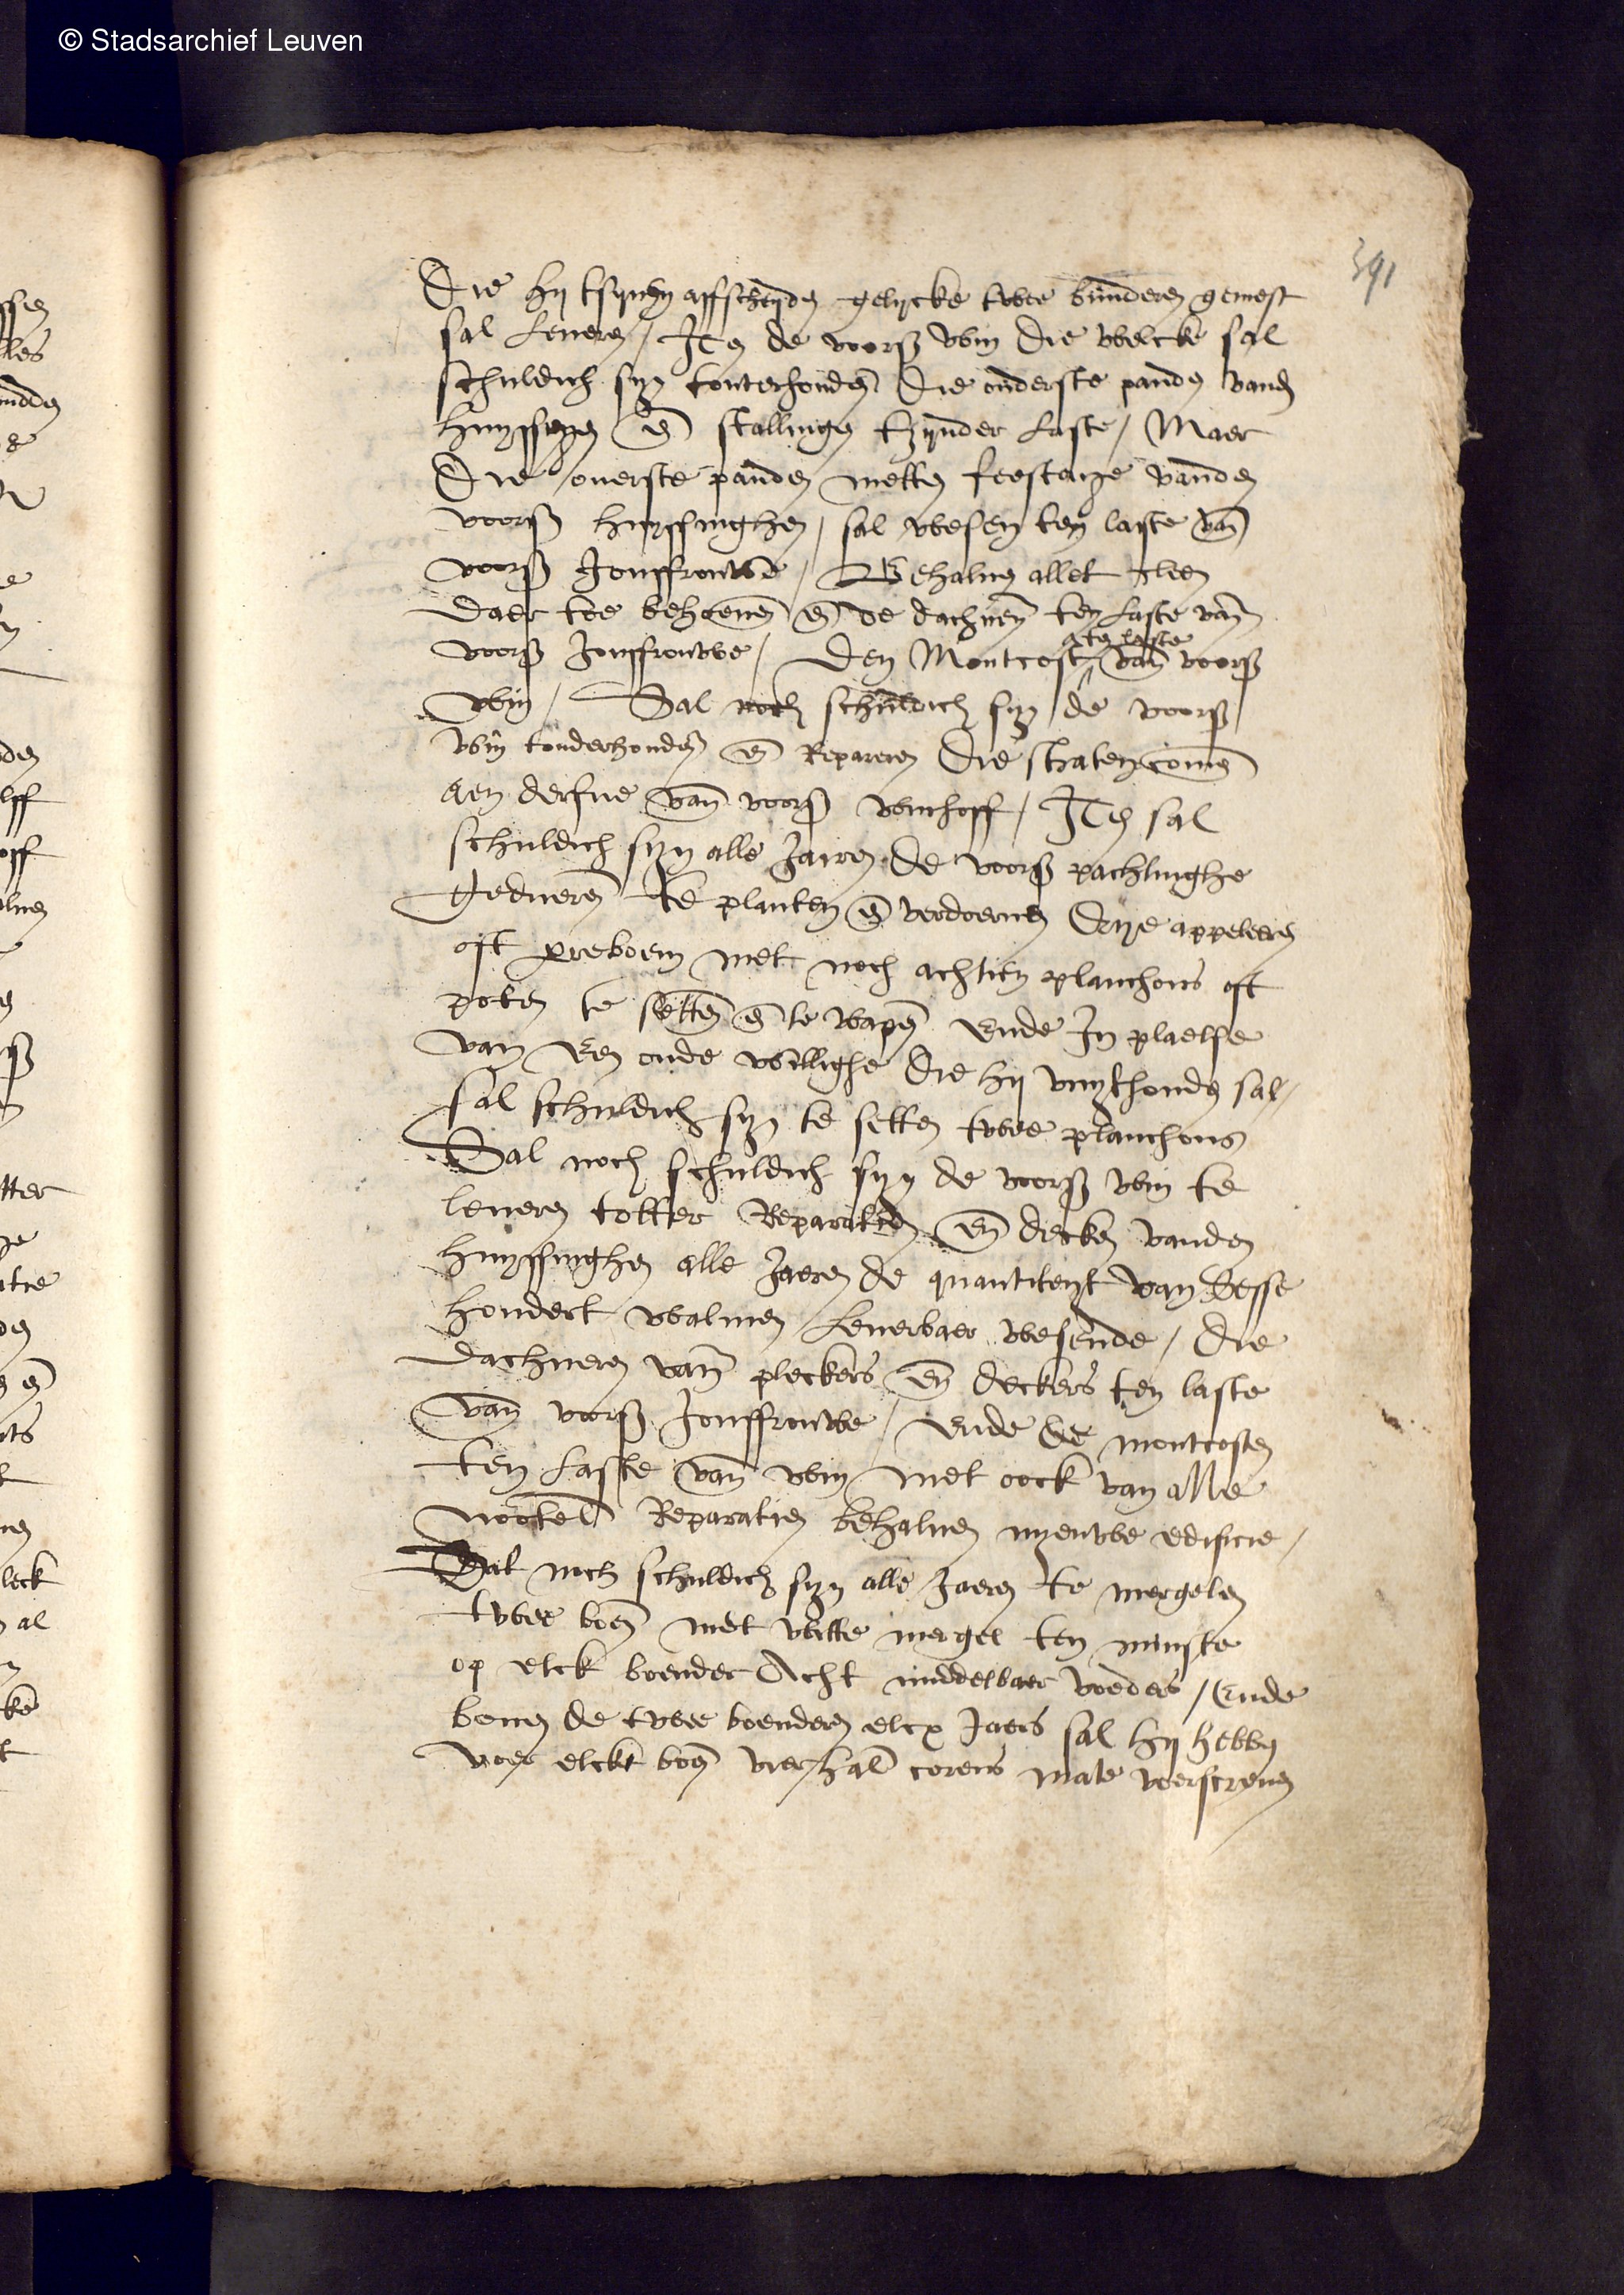 © Stadsarchief Leuven
391
Die hij tsynen affscheyden gelycke twee bunderen gemest
sal leveren / Item de voors win die welcke sal
schuldich syn tonterhouden die onderste panden vanden
huyssingen en stallingen tzynder laste / Maer
Die overste panden metten feestarye vanden
voors huyssinghen / sal wesen ten laste van
voors Jouffrouwe / Behalven allet tleen
daer toe behoeven en de dachueren ten laste van
voors Jouffrouwe / Den Montcost van voors
ten laste
win / Sal noch schuldich syn de voors
win tonderhouden en Repareren die straten comen
aen derfve van voors winhoff / Item sal
schuldich syn alle Jairen de voors pachtinghe
gedueren te planten en verdoernen drye appeleeren
oft pereboem met noch achtien planchons oft
poten te setten en te wapen Ende In plaetse
van een oude willighe die hij vuythouden sal /
sal schuldich syn te setten twee planchons
Sal noch schuldich syn de voors win te
leveren totter Reparatien en decken vanden
huyssinghen alle Jaeren de quantiteyt van sesse
hondert walmen leverbaer wesende / die
dachueren van pleckers en deckers ten laste
van voors Jouffrouwe / Ende de montcosten
ten laste van win met oock van alle
nootel Reparatien behalven nyeuwe edificie /
Sal noch schuldich syn alle Jaeren te mergelen
twee boen met witte mergel ten minste
op elck boender Acht middelbaer voeders / Ende
boven de twee boenderen elcx Jaers sal hij hebben
voer elckt boen vier hal corens mate voerscreven